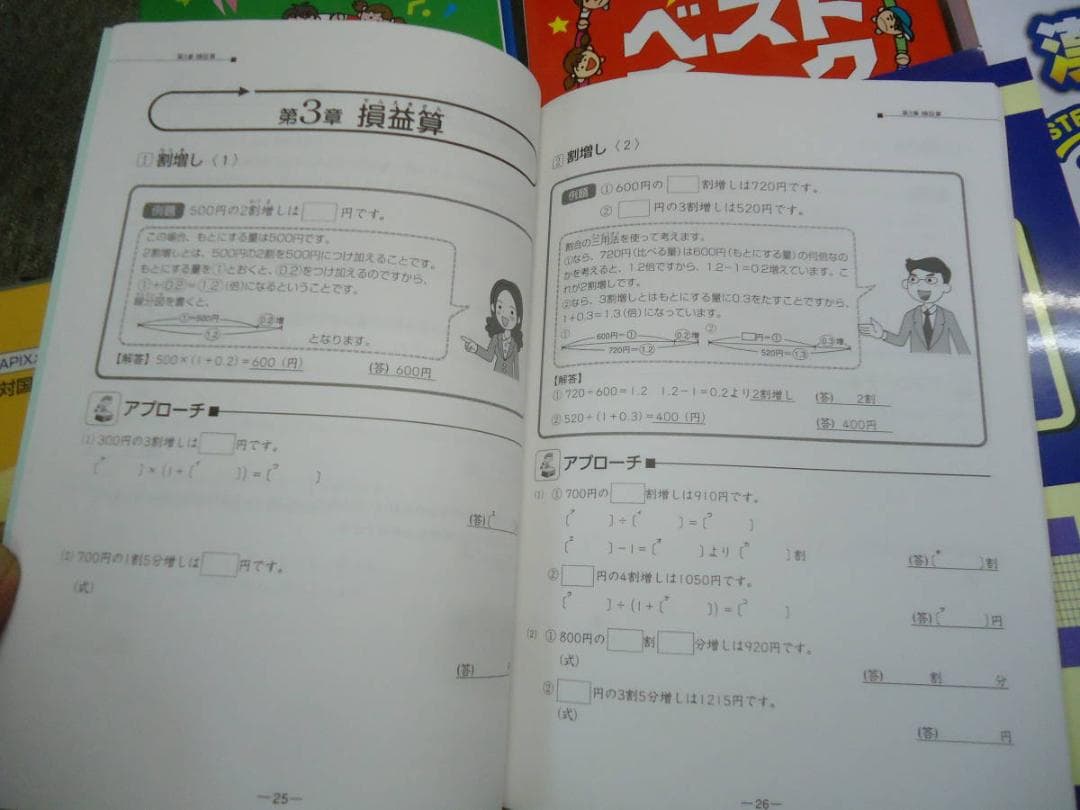 第3章 損益算
第3章 損益算
そんえきざん
1 割増し〈1〉
例題 500円の2割増しは□円です。
この場合、もとにする量は500円です。
2割増しとは、500円の2割を500円につけ加えることです。
もとにする量を①とおくと、0.2をつけ加えるのですから、
①+0.2=1.2(倍)になるということです。
線分図を書くと、
①=500円 0.2増
1.2
となります。
【解答】500×(1+0.2)=600(円) (答) 600円
アプローチ
(1) 300円の3割増しは□円です。
[ア ]×(1+[イ ])=[ウ ]
(答)[エ
(2) 700円の1割5分増しは□円です。
(式)
(答)
—25—
第3章 損益算
2 割増し〈2〉
例題 ① 600円の□割増しは720円です。
② □円の3割増しは520円です。
割合の三用法を使って考えます。
①なら、720円(比べる量)は600円(もとにする量)の何倍なの
かを考えると、1.2倍ですから、1.2-1=0.2増えています。こ
れが2割増しです。
②なら、3割増しとはもとにする量に0.3をたすことですから、
1+0.3=1.3(倍)になっています。
① 600円=① 0.2増 ② □円=① 0.3増
720円=1.2 520円=1.3
【解答】
① 720÷600=1.2 1.2-1=0.2より2割増し (答) 2割
② 520÷(1+0.3)=400(円) (答) 400円
アプローチ
(1) ① 700円の□割増しは910円です。
[ア ]÷[イ ]=[ウ ]
[エ ]-1=[オ ]より[カ ]割 (答)[キ ]割
② □円の4割増しは1050円です。
[ ]÷(1+[ ])=[ ] (答)[ ]円
(2) ① 800円の□割□分増しは920円です。
(式)
(答) 割 分
② □円の3割5分増しは1215円です。
(式)
(答) 円
—26—
ベスト
ク
APIX
対国
STE